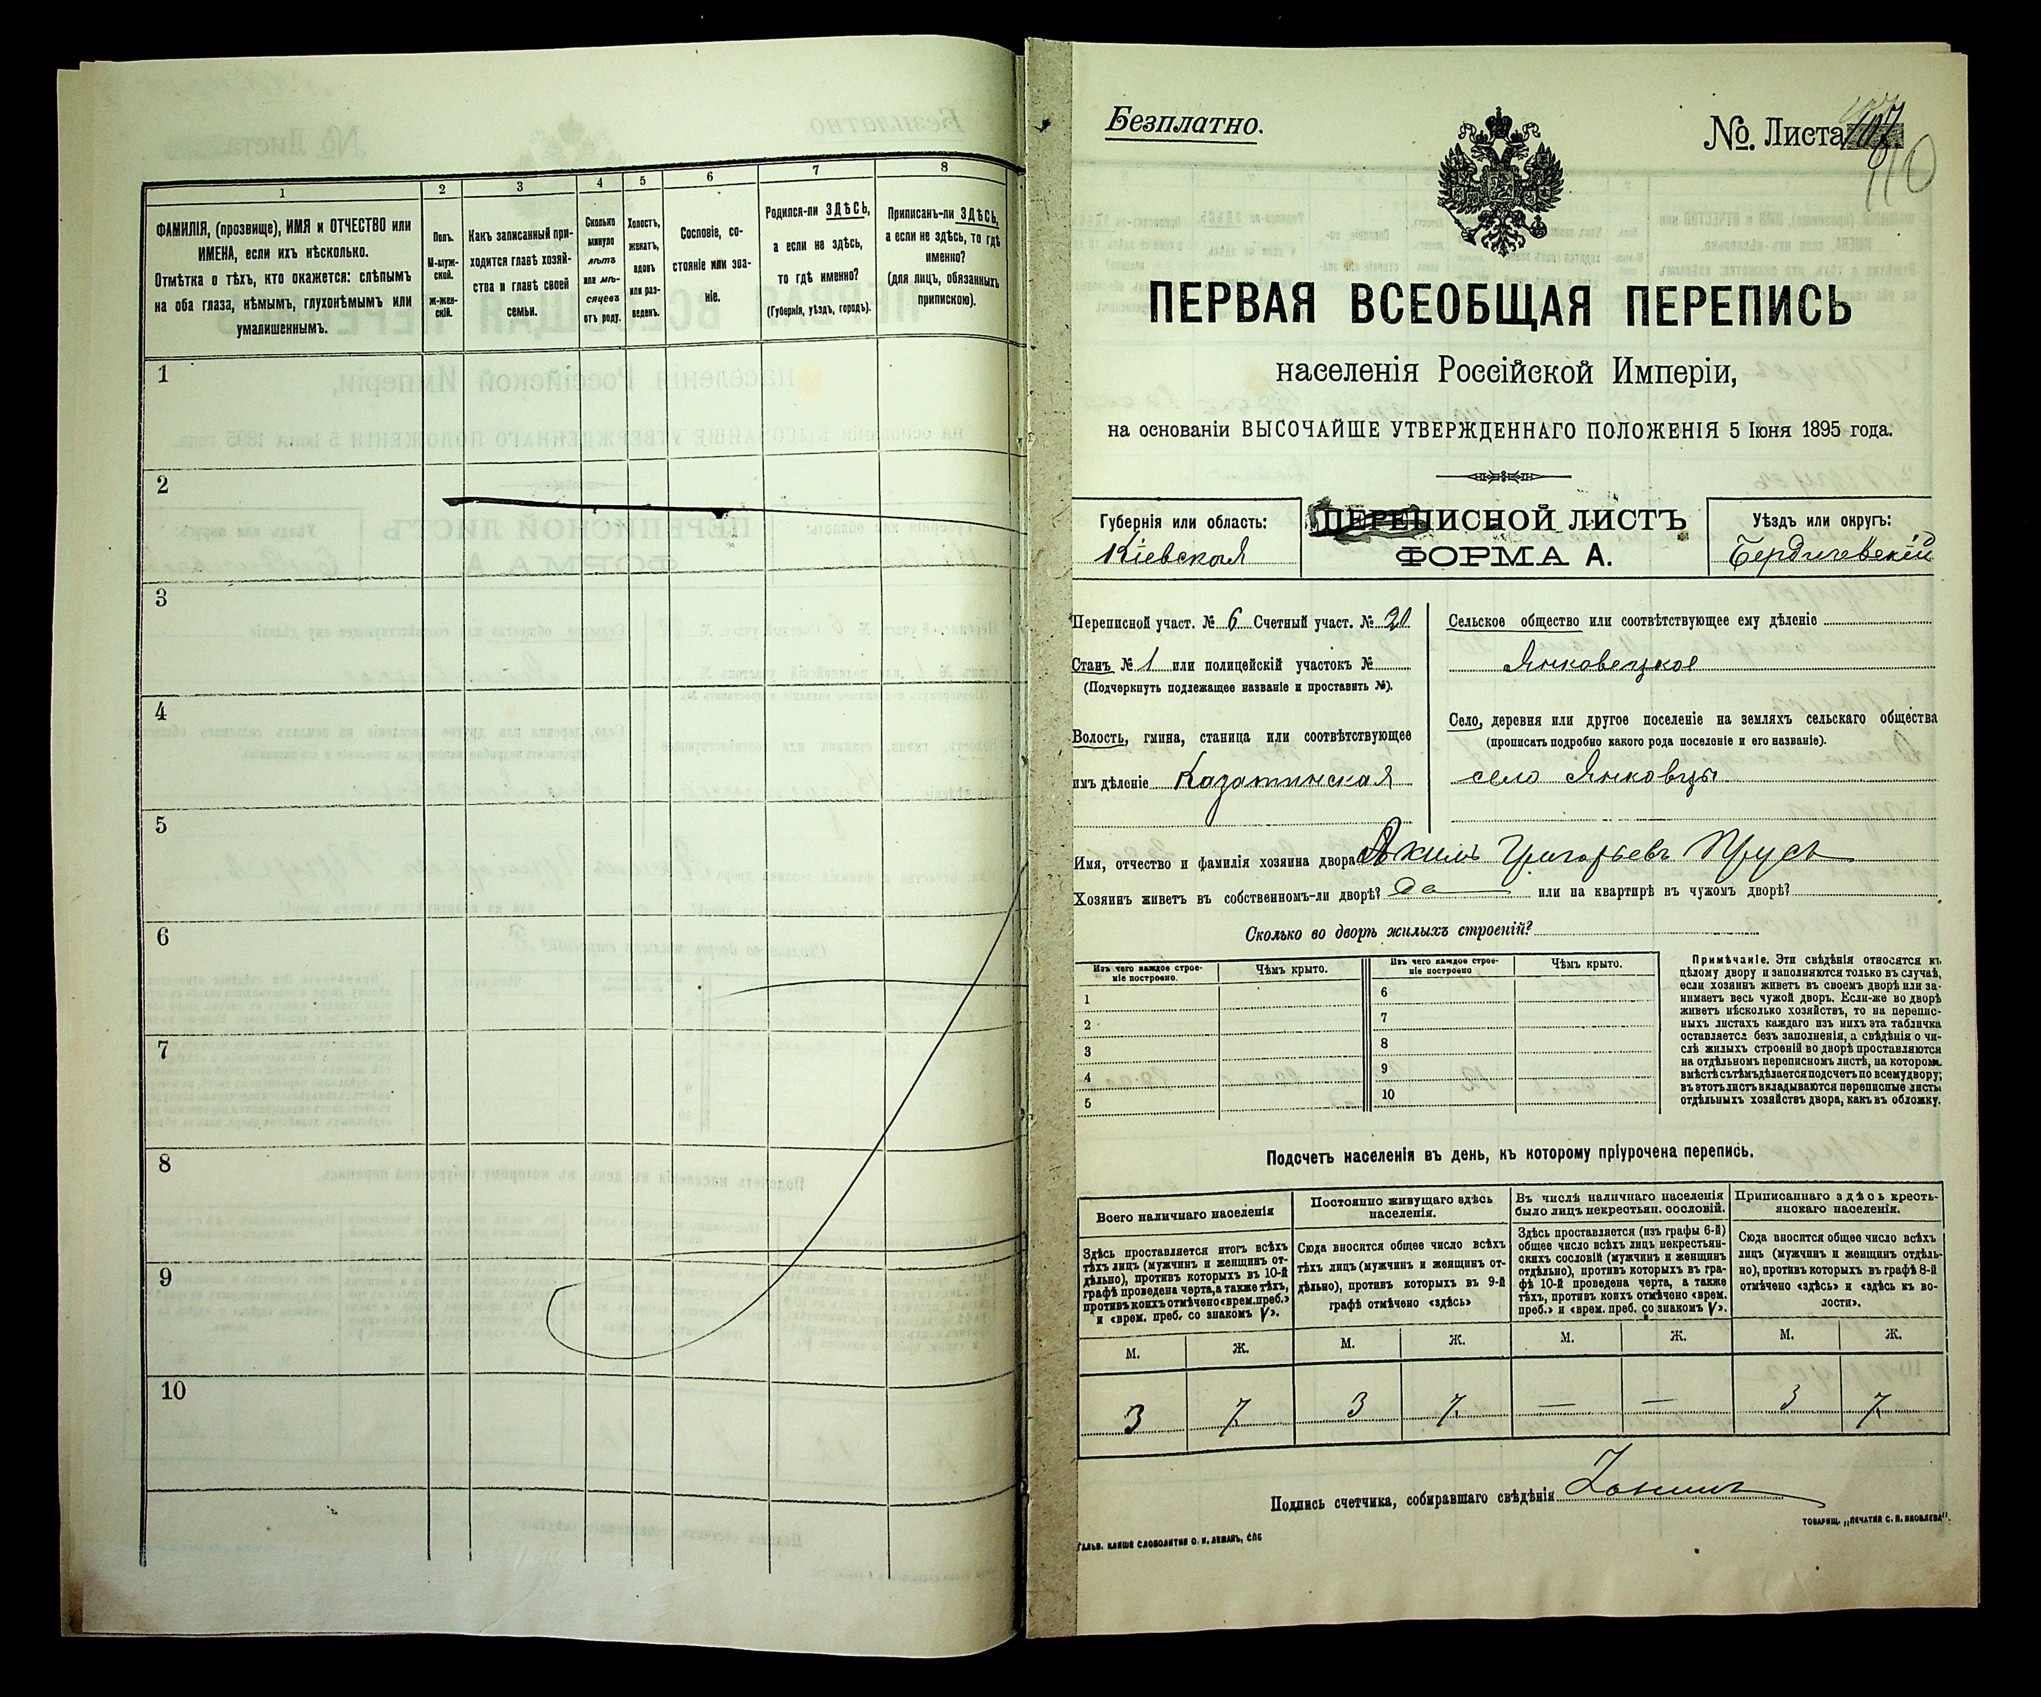 1
2
3
4
5
6
7
8
ФАМИЛІЯ, (прозвище), ИМЯ и ОТЧЕСТВО или
ИМЕНА, если ихъ нѣсколько.
Отмѣтка о тѣхъ, кто окажется: слѣпымъ
на оба глаза, нѣмымъ, глухонѣмымъ или
умалишеннымъ.
Полъ.
М-муж-
ской.
Ж-жен-
скій.
Какъ записанный при-
ходится главѣ хозяй-
ства и главѣ своей
семьи.
Сколько
минуло
лѣтъ
или мѣ-
сяцевъ
отъ роду.
Холостъ,
женатъ,
вдовъ
или раз-
веденъ.
Сословіе, со-
стояніе или зва-
ніе.
Родился-ли ЗДѢСЬ,
а если не здѣсь,
то гдѣ именно?
(Губернія, уѣздъ, городъ).
Приписанъ-ли ЗДѢСЬ,
а если не здѣсь, то гдѣ
именно?
(для лицъ, обязанныхъ
припискою).
1
2
3
4
5
6
7
8
9
10
Безплатно.
№. Листа 107
110
ПЕРВАЯ ВСЕОБЩАЯ ПЕРЕПИСЬ
населенія Россійской Имперіи,
на основаніи ВЫСОЧАЙШЕ УТВЕРЖДЕННАГО ПОЛОЖЕНІЯ 5 Іюня 1895 года.
Губернія или область:
Кіевская
ПЕРЕПИСНОЙ ЛИСТЪ
ФОРМА А.
Уѣздъ или округъ:
Бердичевскій
Переписной участ. № 6 Счетный участ. № 20
Станъ № 1 или полицейскій участокъ №
(Подчеркнуть подлежащее названіе и проставить №).
Волость, гмина, станица или соотвѣтствующее
имъ дѣленіе Казатинская
Сельское общество или соотвѣтствующее ему дѣленіе
Янковецкое
Село, деревня или другое поселеніе на земляхъ сельскаго общества
(прописать подробно какого рода поселеніе и его названіе).
село Янковцы
Имя, отчество и фамилія хозяина двора Якимъ Григорьевъ Прусъ
Хозяинъ живетъ въ собственномъ-ли дворѣ? да или на квартирѣ въ чужомъ дворѣ?
Сколько во дворѣ жилыхъ строеній?
Изъ чего каждое строе-
ніе построено.
Чѣмъ крыто.
Изъ чего каждое строе-
ніе построено
Чѣмъ крыто.
1
2
3
4
5
6
7
8
9
10
Примѣчаніе. Эти свѣдѣнія относятся къ
цѣлому двору и заполняются только въ случаѣ,
если хозяинъ живетъ въ своемъ дворѣ или за-
нимаетъ весь чужой дворъ. Если-же во дворѣ
живетъ нѣсколько хозяйствъ, то на перепис-
ныхъ листахъ каждаго изъ нихъ эта табличка
оставляется безъ заполненія, а свѣдѣнія о чи-
слѣ жилыхъ строеній во дворѣ проставляются
на отдѣльномъ переписномъ листѣ, на которомъ
вмѣстѣ съ тѣмъ дѣлается подсчетъ по всему двору;
въ этотъ листъ вкладываются переписные листы
отдѣльныхъ хозяйствъ двора, какъ въ обложку.
Подсчетъ населенія въ день, къ которому пріурочена перепись.
Всего наличнаго населенія
Здѣсь проставляется итогъ всѣхъ
тѣхъ лицъ (мужчинъ и женщинъ от-
дѣльно), противъ которыхъ въ 10-й
графѣ проведена черта, а также тѣхъ,
противъ коихъ отмѣчено «врем. преб.»
и «врем. преб. со знакомъ V».
Постоянно живущаго здѣсь
населенія.
Сюда вносится общее число всѣхъ
тѣхъ лицъ (мужчинъ и женщинъ от-
дѣльно), противъ которыхъ въ 9-й
графѣ отмѣчено «здѣсь»
Въ числѣ наличнаго населенія
было лицъ некрестьян. сословій.
Здѣсь проставляется (изъ графы 6-й)
общее число всѣхъ лицъ некрестьян-
скихъ сословій (мужчинъ и женщинъ
отдѣльно), противъ которыхъ въ гра-
фѣ 10-й проведена черта, а также
тѣхъ, противъ коихъ отмѣчено «врем.
преб.» и «врем. преб. со знакомъ V».
Приписаннаго здѣсь кресть-
янскаго населенія.
Сюда вносится общее число всѣхъ
лицъ (мужчинъ и женщинъ отдѣль-
но), противъ которыхъ въ графѣ 8-й
отмѣчено «здѣсь» и «здѣсь къ во-
лости».
М. Ж. М. Ж. М. Ж. М. Ж.
3 7 3 7 — — 3 7
Подпись счетчика, собиравшаго свѣдѣнія
ТОВАРИЩ. „ПЕЧАТНЯ С. П. ЯКОВЛЕВА".
ГАЛЬВ. КЛИШЕ СЛОВОЛИТНИ О. И. ЛЕМАНЪ, СПБ